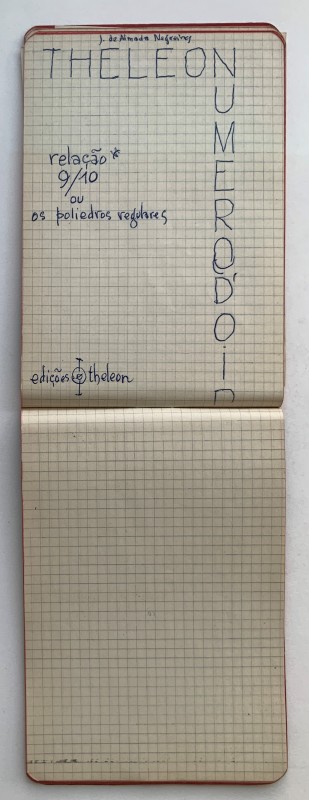 J. de Almada Negreiros
THELEON
NUMEROD'Oi
relação*
9/10
ou
os poliedros regulares
edições theleon